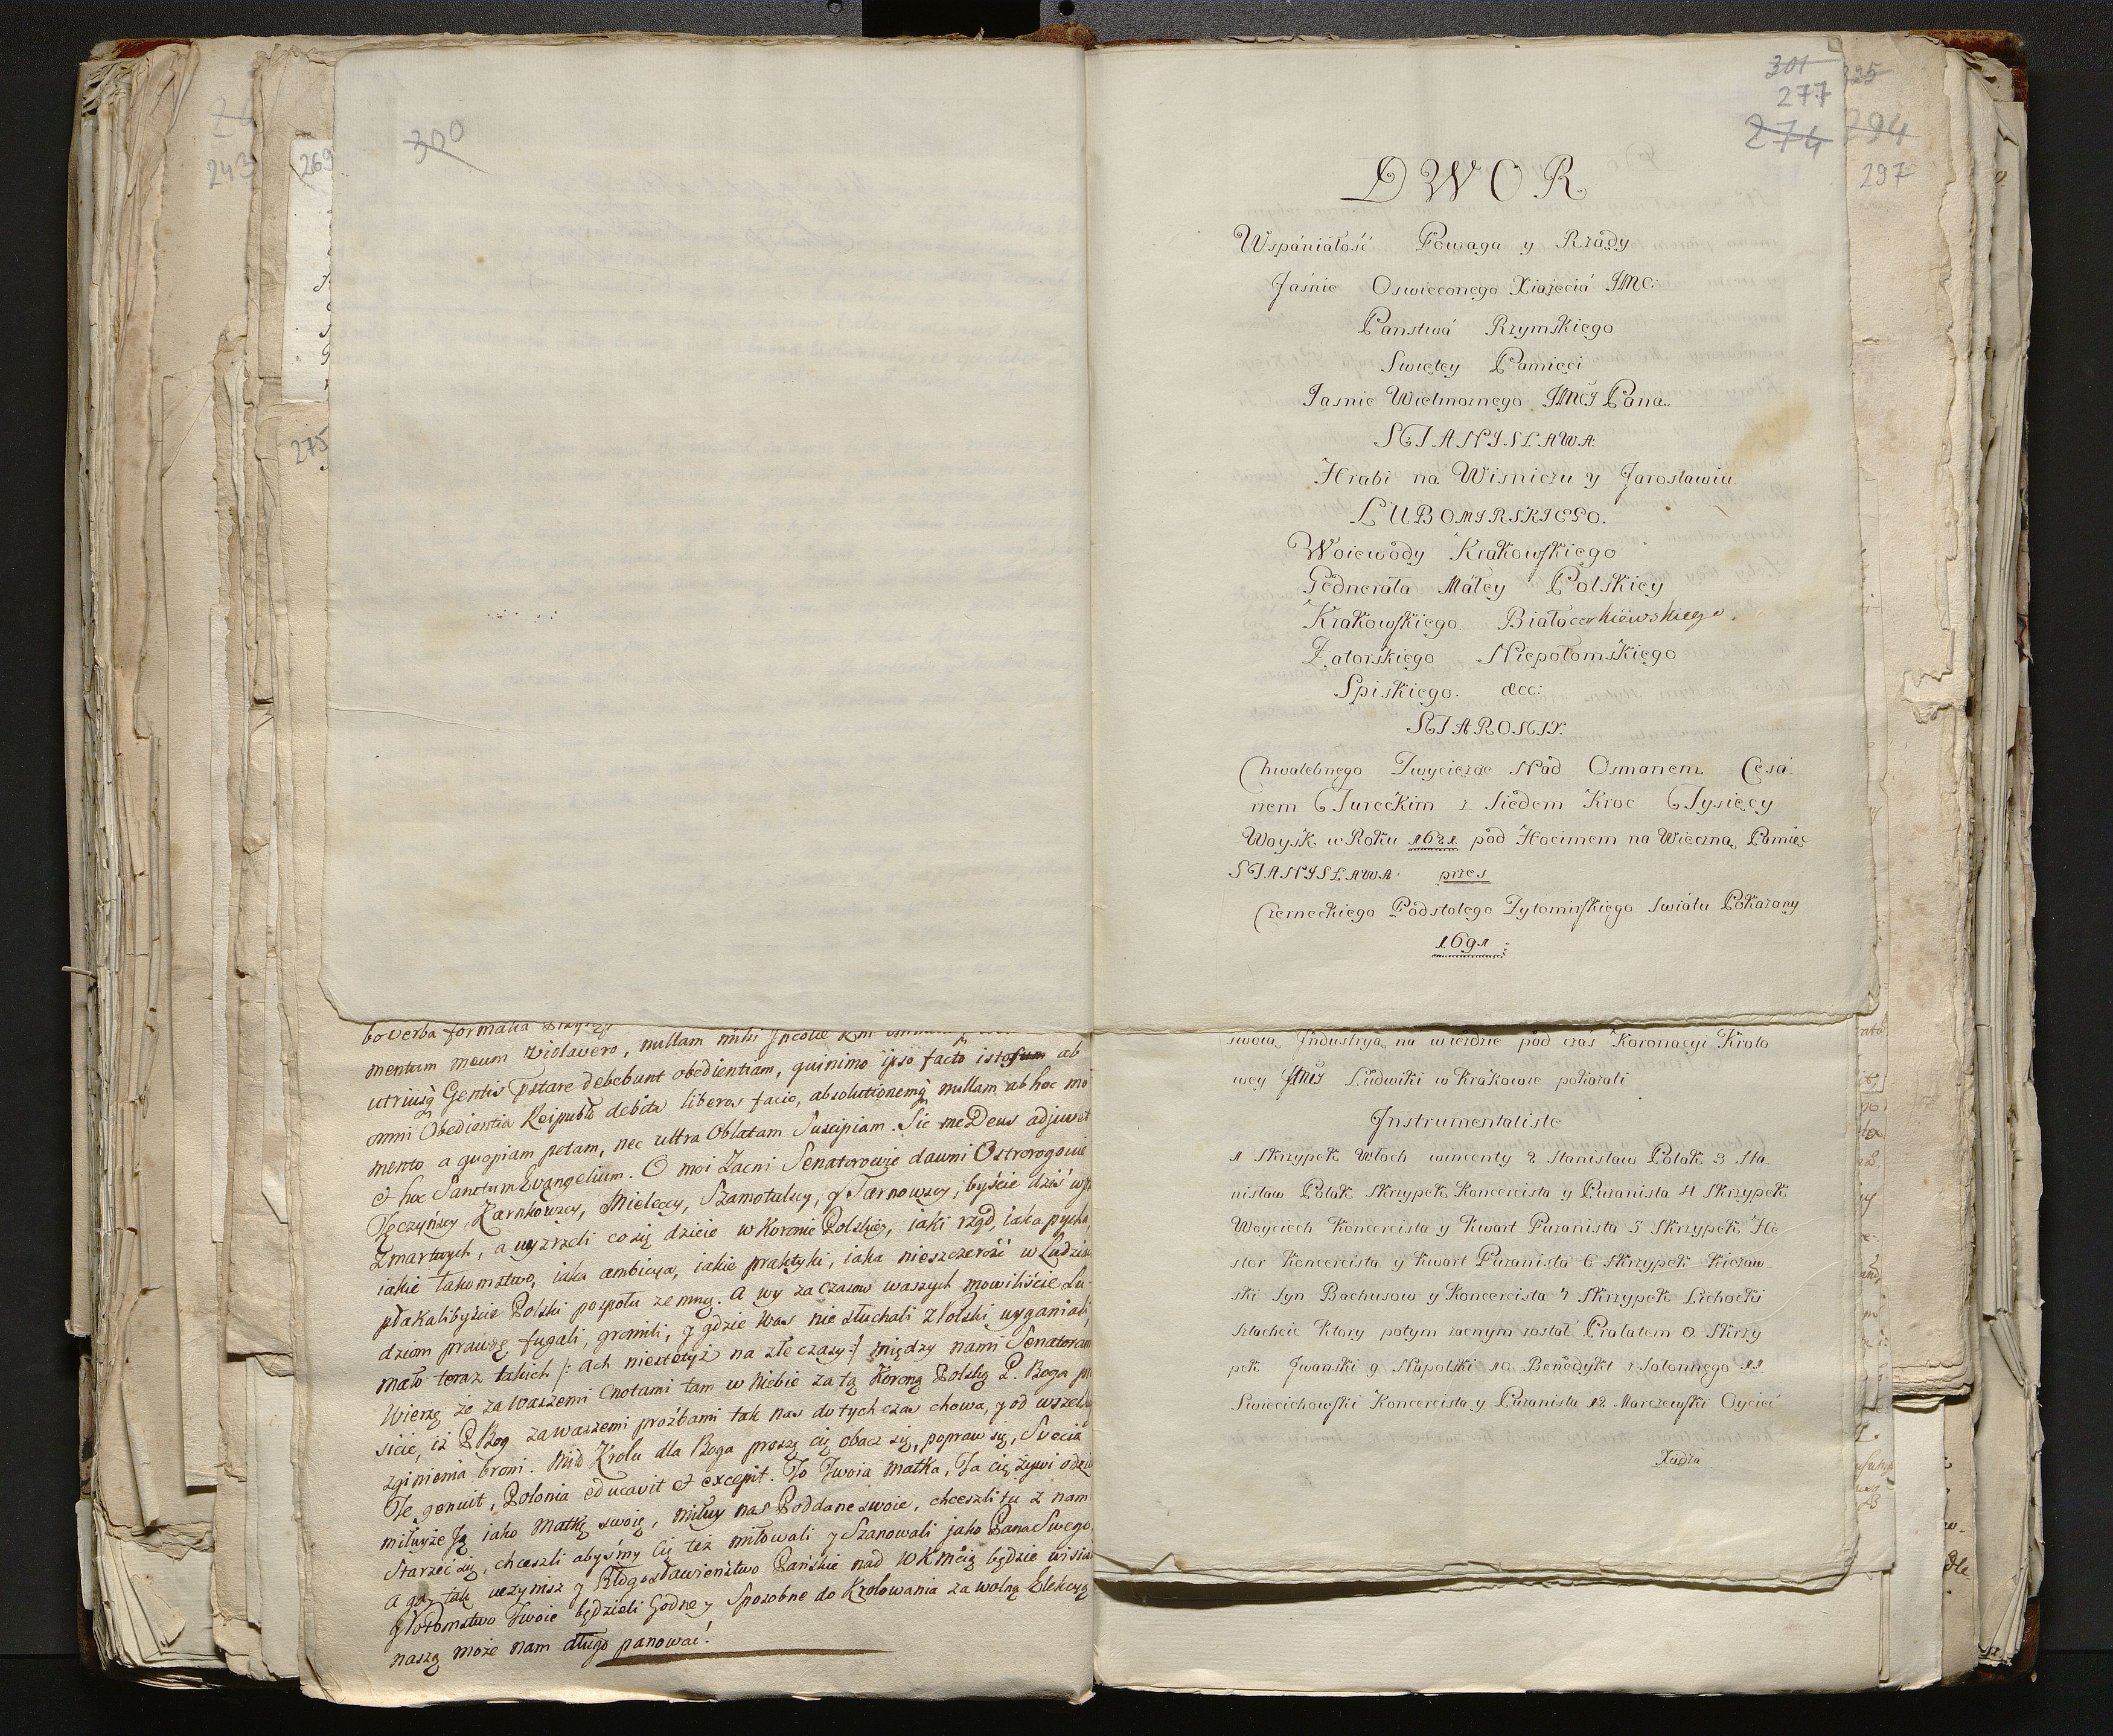 300
243
269
275
bo verba formalia
mentum meum violavero, nullam mihi Incolae
utriusq Gentis pstare debebunt obedientiam, quinimo ipso facto istos ab
omni Obedientia Reipubl debita liberos facio, absolutionemq nullam ab hoc mo
mento a quopiam petam, nec ultra Oblatam Suscipiam. Sic me Deus adjuvet
et hoc Sanctum Evangelium. O moi Zacni Senatorowie dawni Ostrorogowie
Tęczyńscy, Zarnkowscy, Mieleccy, Szamotulscy, y Tarnowscy, byście dziś
Zmartwych, a uyzrzeli co się dzieie w Koronie Polskiey, iaki rząd, iaka pycha,
iakie łakomstwo, iaka ambicya, iakie praktyki, iaka nieszczerość w Ludziach
płakalibyście Polski pospołu zemną. a wy za czasow waszych mowiliście Lu-
dziom prawdę, fugali, gromili, y gdzie Was nie słuchali z Polski wyganiali,
mało teraz takich /: ach niestetyż na złe czasy :/ między nami Senatorami
Wierzę że za Waszemi Cnotami tam w Niebie za tą Koroną Polską P. Boga
sicie, iż P Bog za waszemi proźbami tak nas do tych czas chowa, y od wszel
zginienia broni. Miły Krolu dla Boga proszę cię obacz się, popraw się, Svecia
Te genuit, Polonia educavit et excepit. To Twoia Matka, Ta cię żywi
miłuyże Ją iako Matkę swoię, miłuy nas Poddane swoie, chceszli tu z nam
Starzeć się, chceszli abyśmy Cię też miłowali y Szanowali jako Pana Swego
a gdy tak uczynisz y Błogosławieństwo Pańskie nad WKMcią będzie
y Potomstwo Twoie będzieli Godne y Sposobne do Krolowania za wolną Elekcyą
naszą może nam długo panować!
301
277
274
325
294
297
DWOR
Wspániałość Powaga y Rządy
Jaśnie Oswieconego Xiążęciá JMC:
Panstwá Rzymskiego
Swiętey Pamięci
Jasnie Wielmoznego JMCJ Pana
STANISLAWA
Hrabi na Wisniczu y Jarosławiu
LUBOMIRSKIEGO.
Woiewody Krakowskiego
Generała Máłey Polskiey
Krakowskiego Białocerkiewskiego
Zatorskiego Niepołomskiego
Spiskiego. &cc:
STAROSTY.
Chwalebnego Zwyciezcę Nád Osmanem Cesá
rzem Tureckim z Siedem Kroc Tysięcy
Woysk w Roku 1621 pod Hocimem na Wieczną Pamięć
STANISLAWA przes
Czerneckiego Podstolego Zytomirskiego Swiátu Pokazany
1691
swoią Industryą na wieżdzie pod czás Koronacyi Krolo
wey JMCJ Ludwiki w Krakowie pokazali
Instrumentaliste
1 Skrzypek Włoch wincenty 2 Stanisław Polak 3 Sta.
nisław Polak Skrzypek Koncercista y Puzanista 4 Skrzypek
Woyciech Koncercista y Kwart Puzanista 5 Skrzypek He
ktor Koncercista y Kwart Puzanista 6 Skrzypek Kiczaw
ski Syn Bachusow y Koncercista 7 Skrzypek Lichocki
Szlachcic Ktory potym zacnym został Prałatem 8 Skrzy
pek Jwanski 9 Napolski 10 Benedykt z Solonnego 11
Swiecichowski Koncercista y Puzanista 12 Marczewski Oyciec
Xiędza